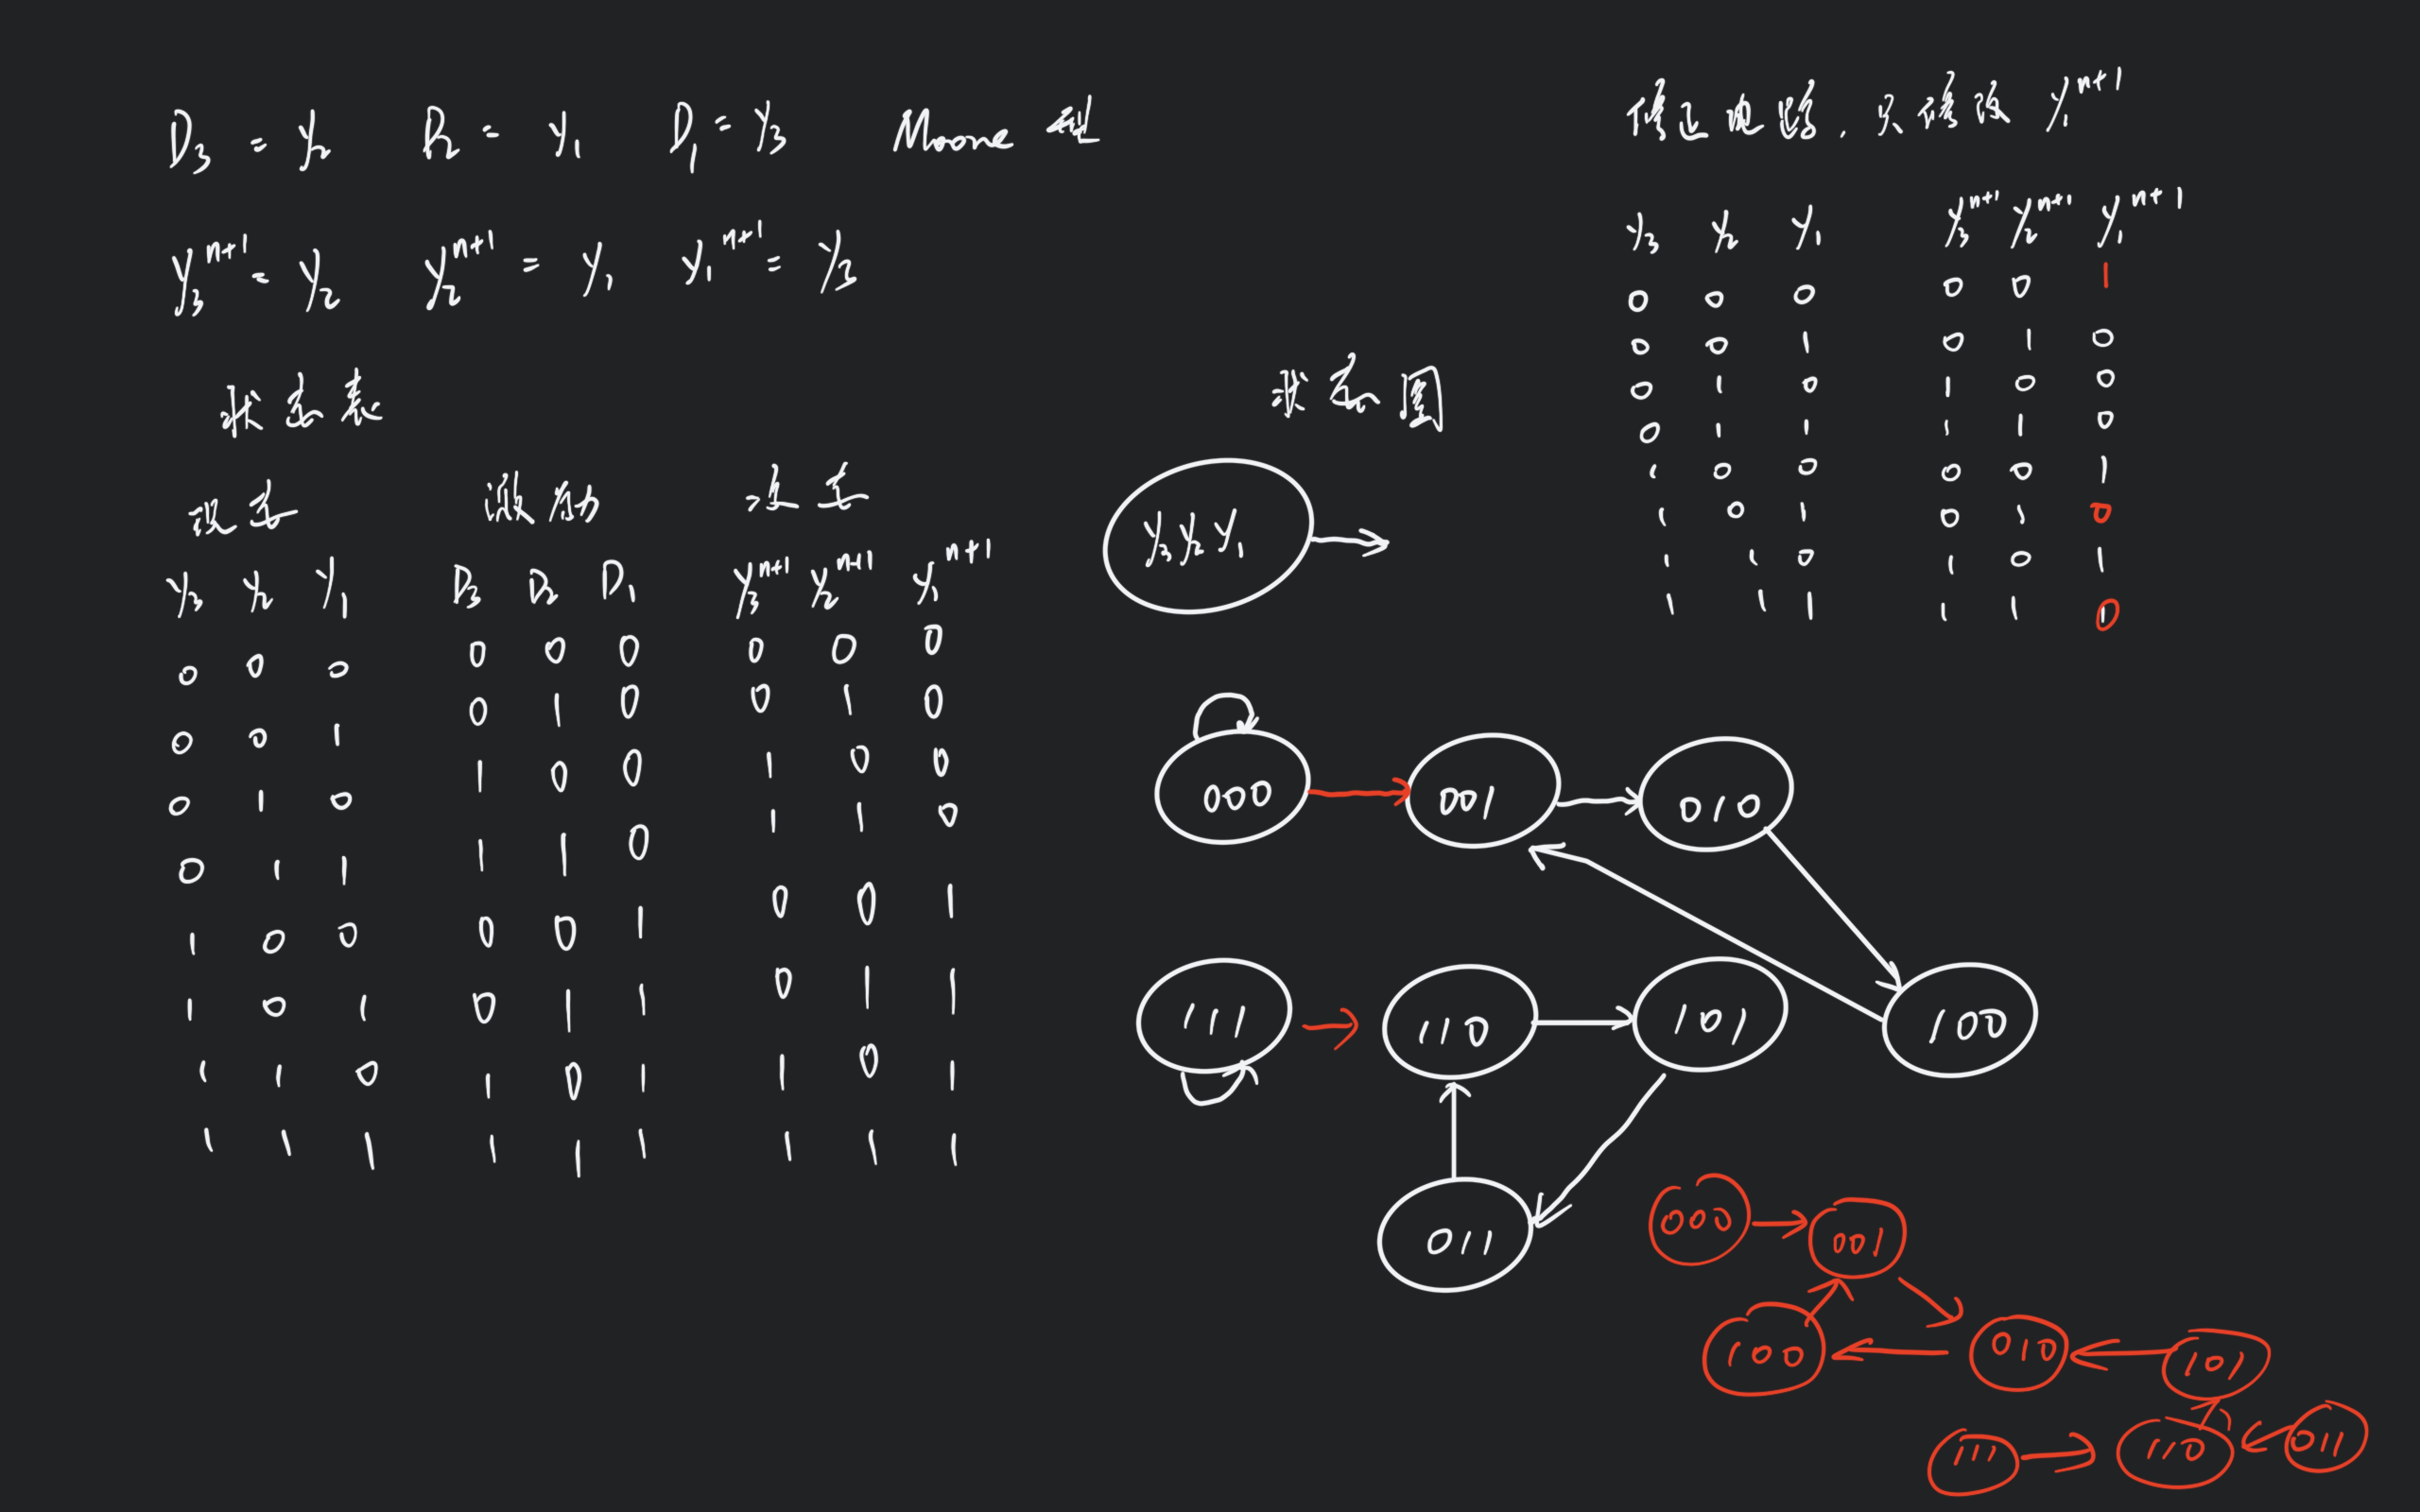 D₃ = y₂ D₂ = y₁ D₁ = y₃ Moone 型
y₃ⁿ⁺¹ = y₂ y₂ⁿ⁺¹ = y₁ y₁ⁿ⁺¹ = y₃
状态表
现态 激励 次态
y₃ y₂ y₁ D₃ D₂ D₁ y₃ⁿ⁺¹ y₂ⁿ⁺¹ y₁ⁿ⁺¹
0 0 0 0 0 0 0 0 0
0 0 1 0 1 0 0 1 0
0 1 0 1 0 0 1 0 0
0 1 1 1 1 0 1 1 0
1 0 0 0 0 1 0 0 1
1 0 1 0 1 1 0 1 1
1 1 0 1 0 1 1 0 1
1 1 1 1 1 1 1 1 1
状态图
y₃y₂y₁
000 001 010
111 110 101 100
011
修正电路，只修改 y₁ⁿ⁺¹
y₃ y₂ y₁ y₃ⁿ⁺¹ y₂ⁿ⁺¹ y₁ⁿ⁺¹
0 0 0 0 0 1
0 0 1 0 1 0
0 1 0 1 0 0
0 1 1 1 1 0
1 0 0 0 0 1
1 0 1 0 1 0
1 1 0 1 0 1
1 1 1 1 1 0
000 001
100 010 101
111 110 011